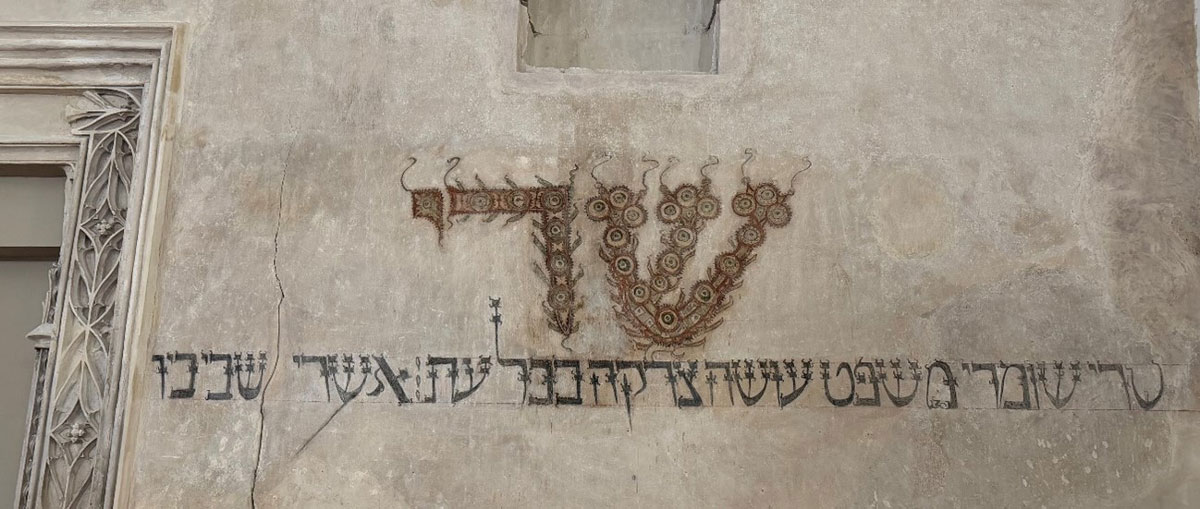 שדי
טרי שומרי משפט עושה צדקה בכל עת: אשרי